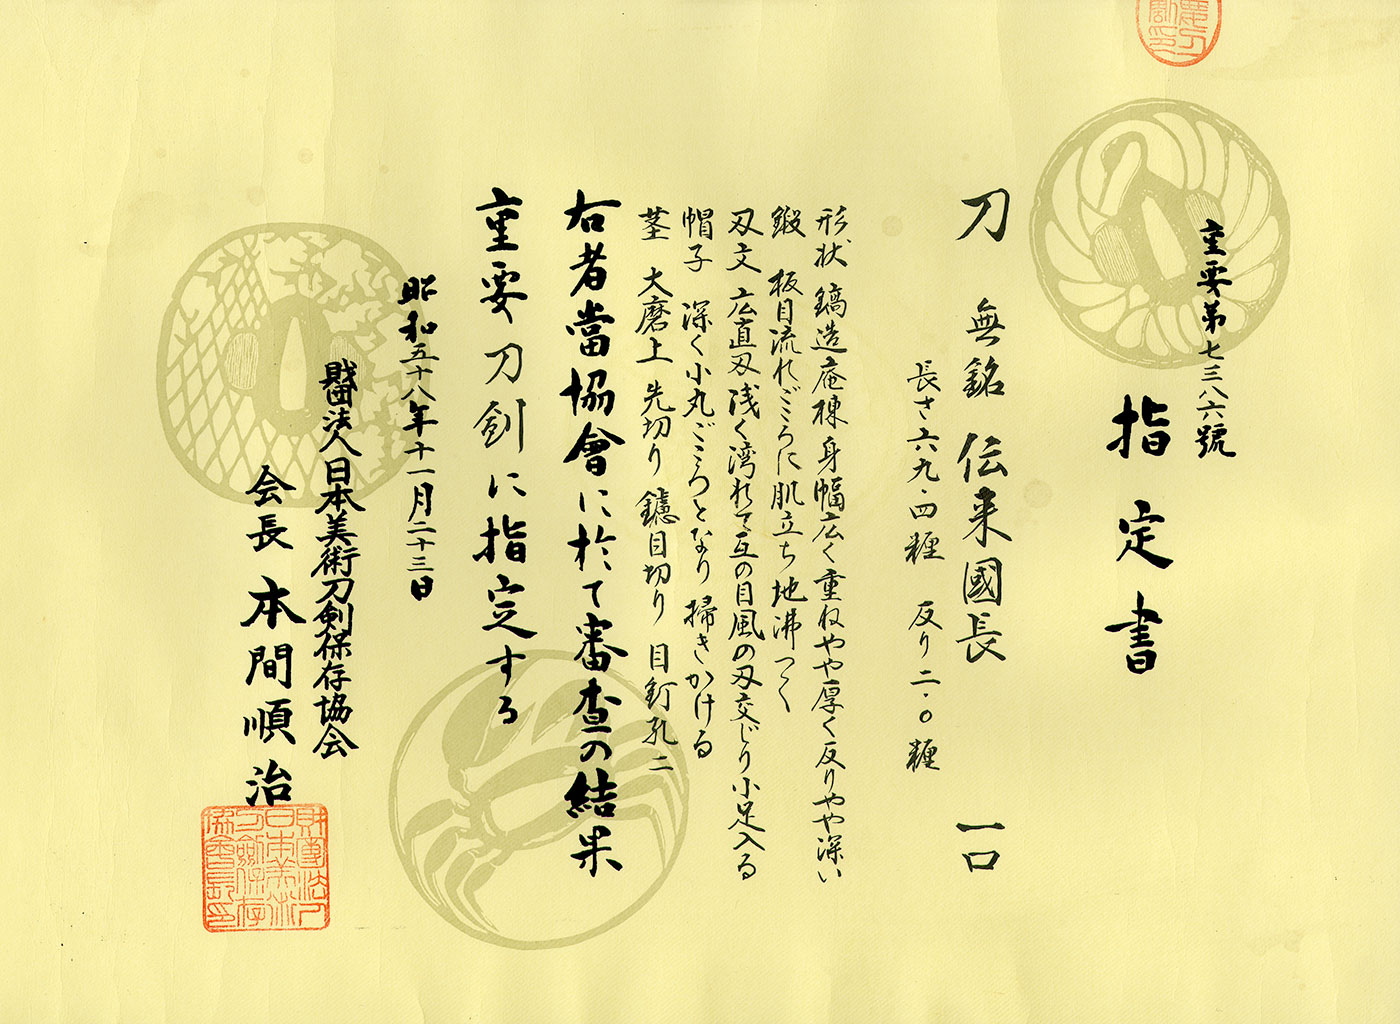 重要第七三八六號
指定書
刀 無銘 伝来國長 一口
長さ六九・四糎 反り二・〇糎
形状 鎬造庵棟身幅広く重ねやや厚く反りやや深い
鍛 板目流れごころに肌立ち地沸つく
刃文 広直刃浅く湾れて互の目風の刃交じり小足入る
帽子 深く小丸ごころとなり掃きかける
茎 大磨上 先切り 鑢目切り 目釘孔二
右者當協會に於て審査の結果
重要刀剣に指定する
昭和五十八年十一月二十三日
財団法人日本美術刀剣保存協会
会長 本間順治
財團法人日本美術刀劍保存協會長印